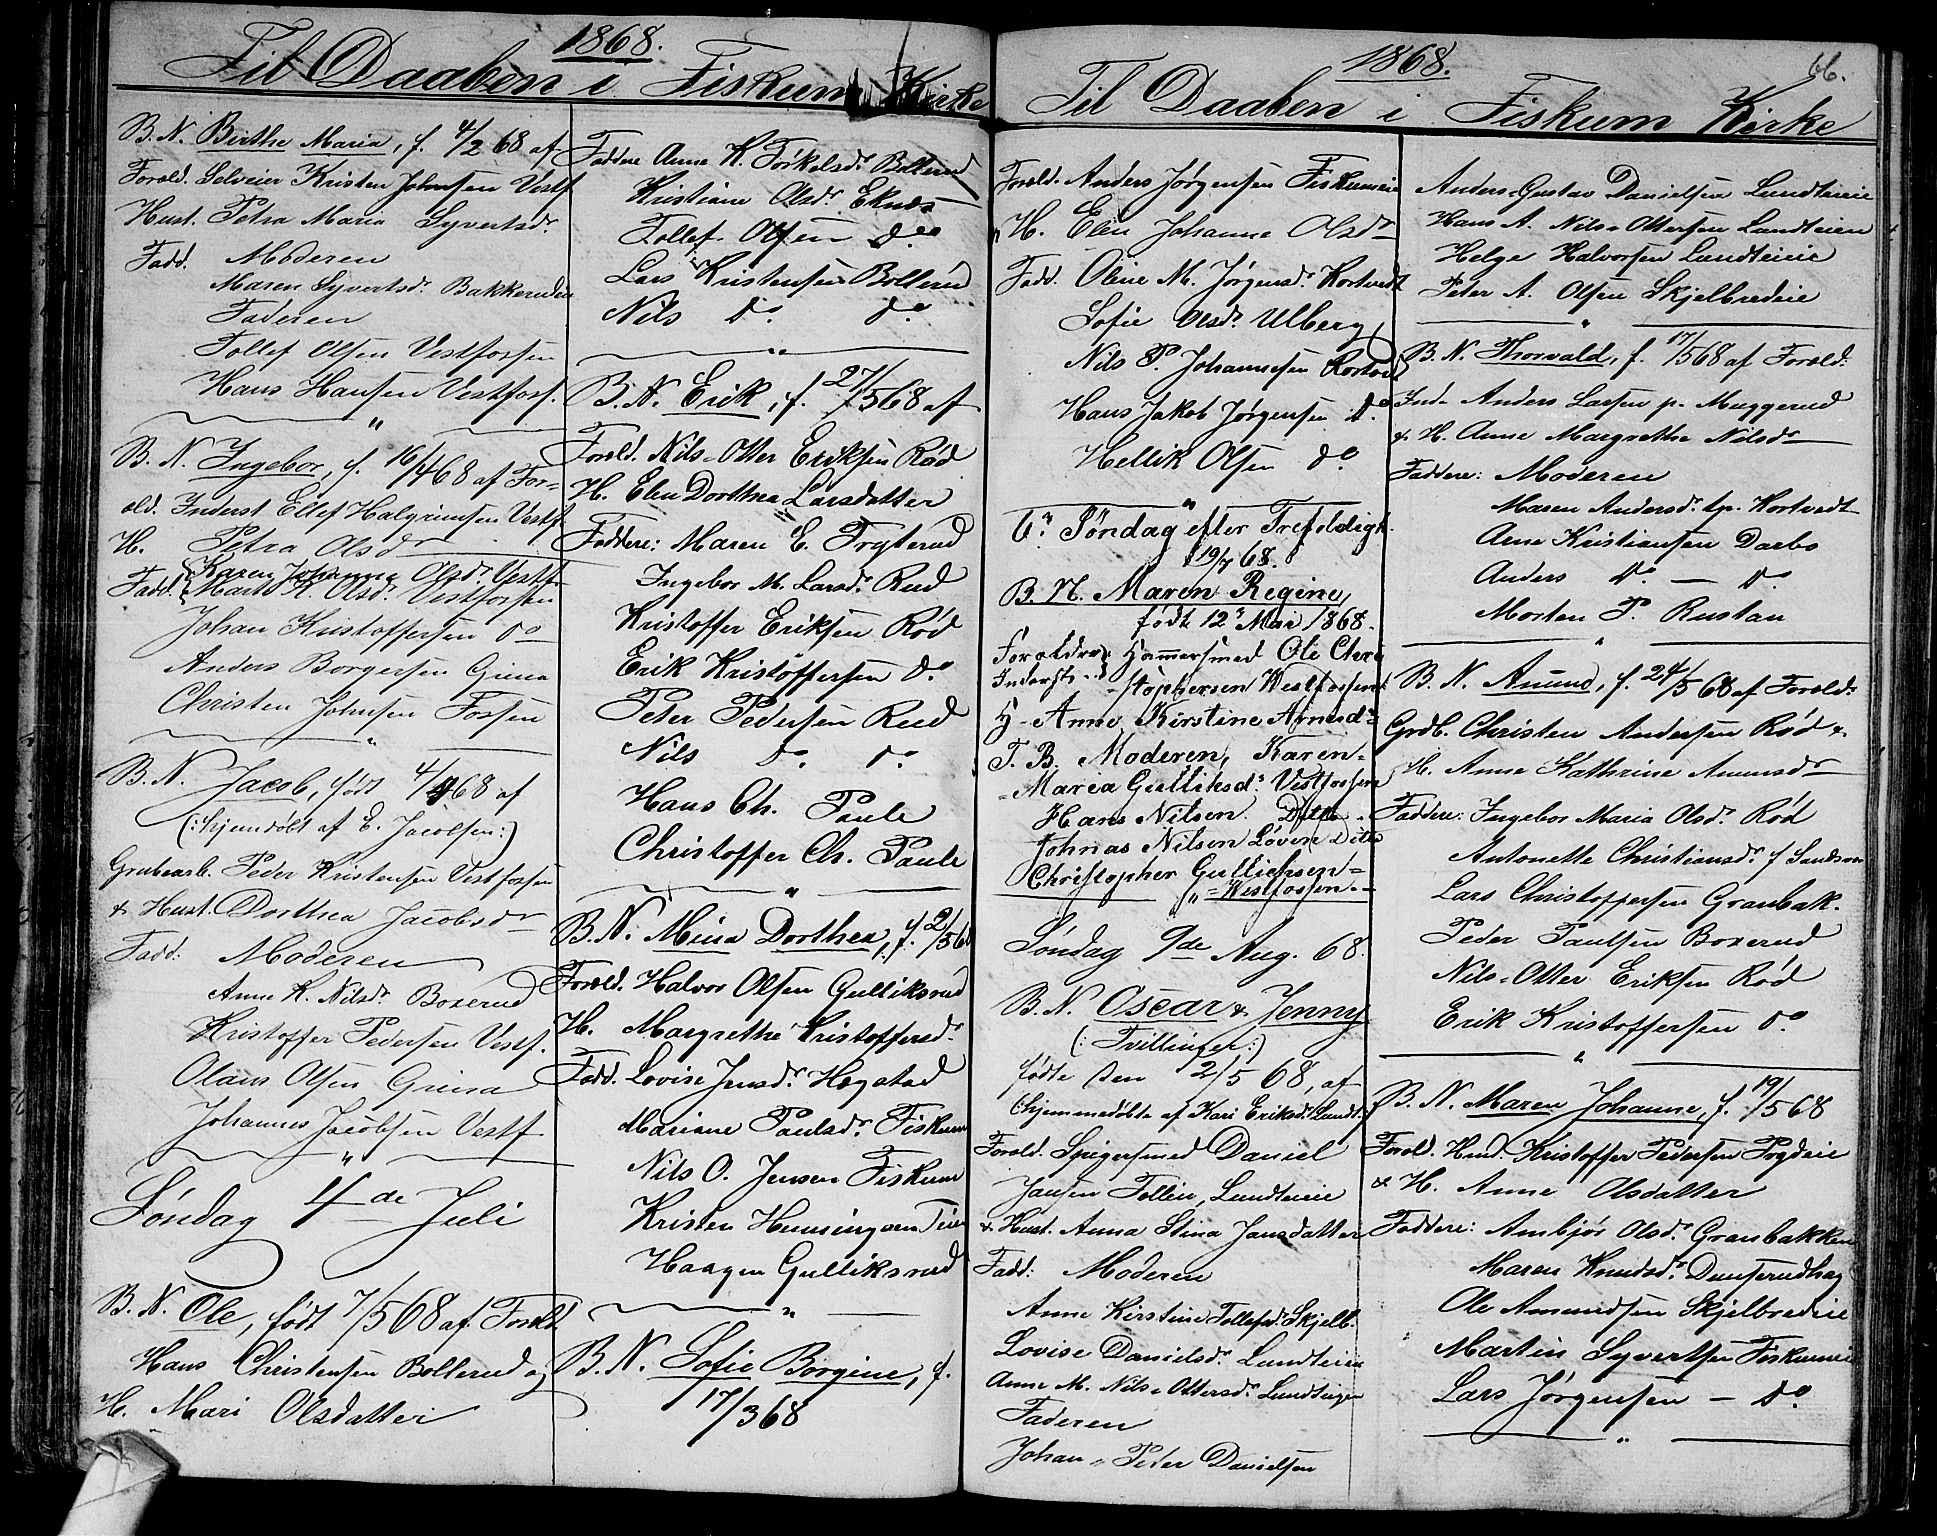 1868.
Til Daaben i Fiskum Kirke
B. N. Birthe Maria, f. 4/2 68 af
Foræld. Selveier Kristen Johnsen Vestf
Hust. Petra Maria Syvertsdr.
Fadd. Moderen
Maren Syvertsdr. Bakkerudeie
Faderen
Tollef Olsen Vestfossen
Hans Hansen Vestfoss.
"
B. N. Ingebor, f. 16/4 68 af For-
æld. Inderst Ellef Halgrimsen Vestf
H. Petra Olsdr
Fadd. Karen Johanne Olsdr. Vestf.
Marte K. Olsdr. Vestfossen
Johan Kristoffersen do
Anders Borgersen Grina
Christen Johnsen Fossen
"
B. N. Jacob, født 4/4 68 af
(: hjemdøbt af E. Jacobsen :)
Grubearb. Peder Kristensen Vestfossen
& Hust. Dorthea Jacobsdr
Fadd: Moderen
Anne K. Nilsdr. Boxerud
Kristoffer Pedersen Vestf.
Olaus Olsen Grina
Johannes Jacobsen Vestf.
"
Søndag 4de Juli
B. N. Ole, født 7/5 68 af Foræld
Hans Christensen Bollerud og
H. Mari Olsdatter
Faddere Anne K. Torkelsdr. Bollerud
Kristiane Olsdr. Eknes
Tollef Olsen do
Lars Kristensen Bollerud
Nils do. do.
"
B. N. Erik, f. 27/5 68 af
Foræld. Nils-Otter Eriksen Rød
H. Elen Dorthea Larsdatter
Faddere: Maren E. Tryterud
Ingebor M. Larsdr. Rud
Kristoffer Eriksen Rød
Erik Kristoffersen do.
Peter Pedersen Rud
Nils do. do.
Hans Ch. Paule
Christoffer Ch. Paule
"
B. N. Mina Dorthea, f. 2/5 68
Foræld. Halvor Olsen Gulliksrud
H. Margrethe Kristoffersdr.
Fadd. Lovise Jensdr. Hogstad
Mariane Paulsdr. Fiskum
Nils O. Jensen Fiskum
Kristen Henningsen Teien
Haagen Gulliksrud
"
B. N. Sofie Børgine, f.
17/3 68
1868.
66.
Til Daaben i Fiskum Kirke
Foræld. Anders Jørgensen Fiskumeie
H. Elen Johanne Olsdr
Fadd. Oline M. Jørgensdr. Kortvedt
Sofie Olsdr. Ulberg
Nils P. Johannesen Kortved
Hans Jakob Jørgensen do
Hellik Olsen do.
"
6te Søndag efter Trefoldigh.
19/7 68.
B. N. Maren Regine,
født 12te Mai 1868.
Forældre: Hammersmed Ole Chri
Inderst stophersen Westfossen
H. Anne Kirstine Arnesdr
T. B. Moderen, Karen
Maria Gulliksdr. Vestfossen
Hans Nilsen Ditto
Johnas Nilsen Løvene Ditto
Christopher Gullichsen
" Westfossen
Søndag 9de Aug. 68.
B. N. Oscar & Jenny
(: Tvillinger :)
fødte den 2/5 68, af
(hjemmedøbte af Kari Eriksdr. Lundt.
Foræld. Spigersmed Daniel
Jansen Tollin, Lundteieie
& Hust. Anna Stina Jansdatter
Fadd: Moderen
Anne Kirstine Tollefsdr. Skjelb.
Lovise Danielsdr. Lundteien
Anne M. Nils-Ottersdr. Lundteigen
Faderen
Johan-Peter Danielsen
Anders-Gustav Danielsen Lundteieie
Hans A. Nils-Ottersen Lundteien
Helge Halvorsen Lundteieie
Peter A. Olsen Skjelbredeie
"
B. N. Thorvald, f. 17/5 68 af Foræld:
Ind. Anders Larsen p. Muggerud
& H. Anne Margrethe Nilsdr
Faddere: Moderen
Maren Andersdr. tp. Kortvedt
Anne Kristiansen Darbo
Anders do. — do
Morten P. Rustan
"
B. N. Amund, f. 24/5 68 af Foræld:
Grdb. Christen Andersen Rød &
H. Anne Kathrine Amunsdr
Faddere: Ingebor Maria Olsdr. Rød
Antonette Christiansdr. f Sandum
Lars Christoffersen Granbak.
Peder Paulsen Boxerud
Nils-Otter Eriksen Rød
Erik Kristoffersen do.
"
B. N. Maren Johanne, f. 19/5 68
Foræld. Hmd. Kristoffer Pedersen Prgdeie
& H. Anne Olsdatter
Faddere: Ambjør Olsdr. Granbakken
Maren Knudsdr. Dunserudhag
Ole Amundsen Skjelbredeie
Martin Syvertsen Fiskumeie
Lars Jørgensen — do.
"